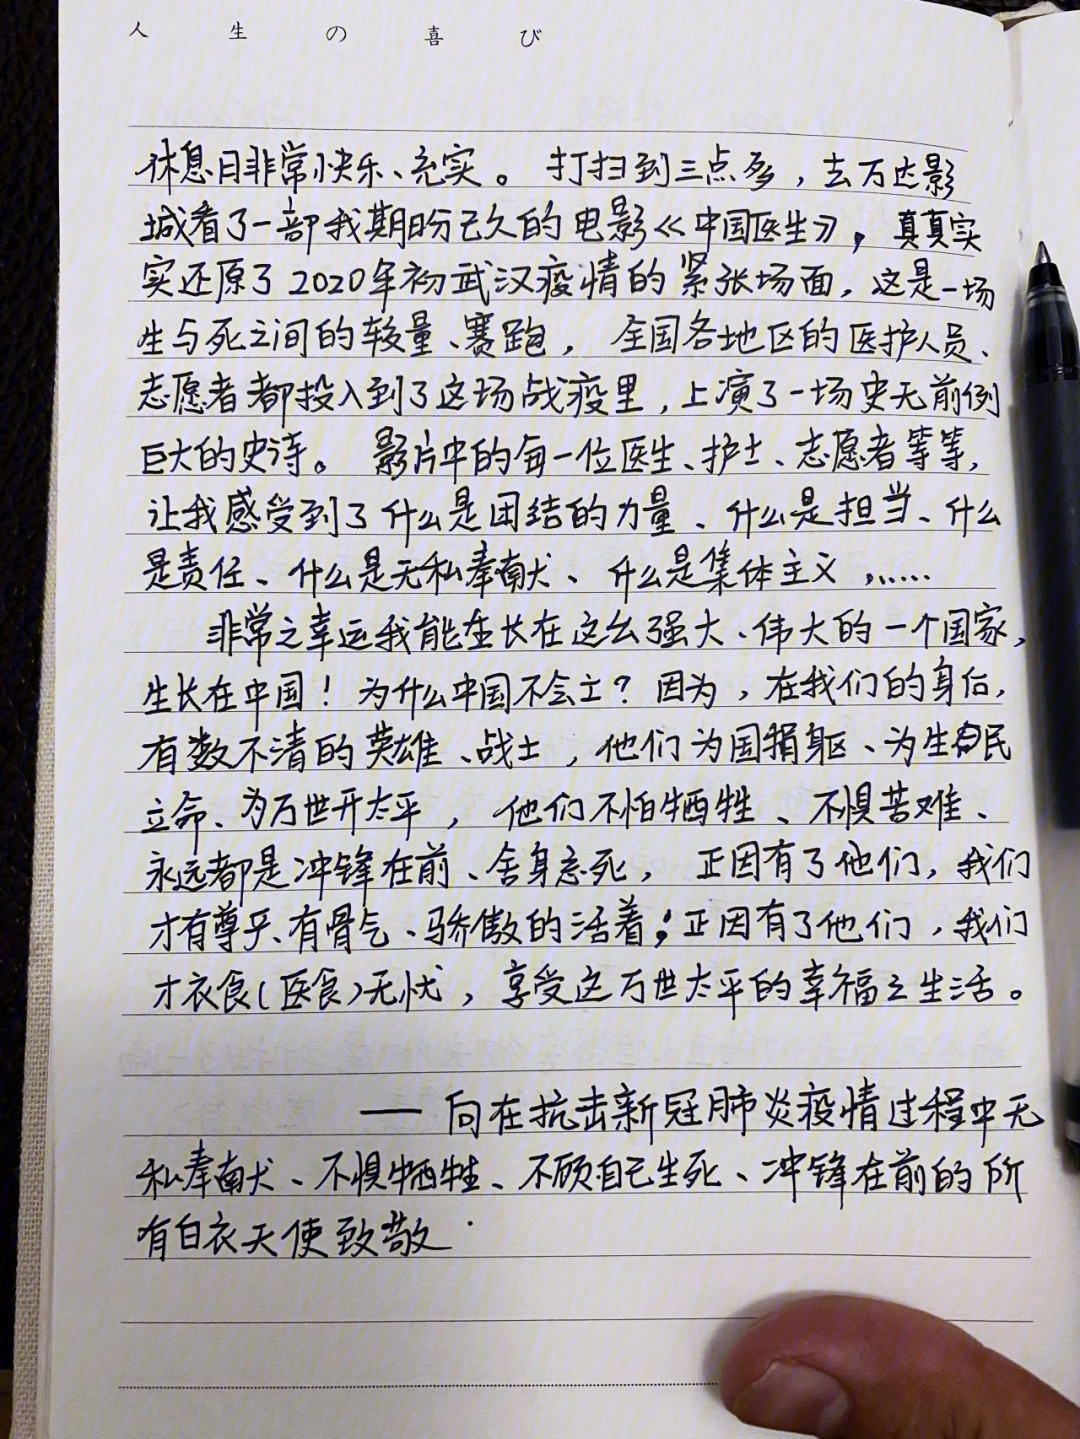 人生の喜び
休息日非常快乐、充实。 打扫到三点多，去万达影
城看了一部我期盼已久的电影《中国医生》，真真实
实还原了2020年初武汉疫情的紧张场面，这是一场
生与死之间的较量、赛跑，全国各地区的医护人员、
志愿者都投入到了这场战疫里，上演了一场史无前例
巨大的史诗。 影片中的每一位医生、护士、志愿者等等，
让我感受到了什么是团结的力量、什么是担当、什么
是责任、什么是无私奉献、什么是集体主义，……
非常之幸运我能生长在这么强大、伟大的一个国家，
生长在中国！为什么中国不会亡？因为，在我们的身后，
有数不清的英雄、战士，他们为国捐躯、为生民
立命、为万世开太平，他们不怕牺牲、不惧苦难、
永远都是冲锋在前、舍身忘死，正因有了他们，我们
才有尊乎、有骨气、骄傲的活着；正因有了他们，我们
才衣食（医食）无忧，享受这万世太平的幸福之生活。
—— 向在抗击新冠肺炎疫情过程中无
私奉献、不惧牺牲、不顾自己生死、冲锋在前的所
有白衣天使致敬.